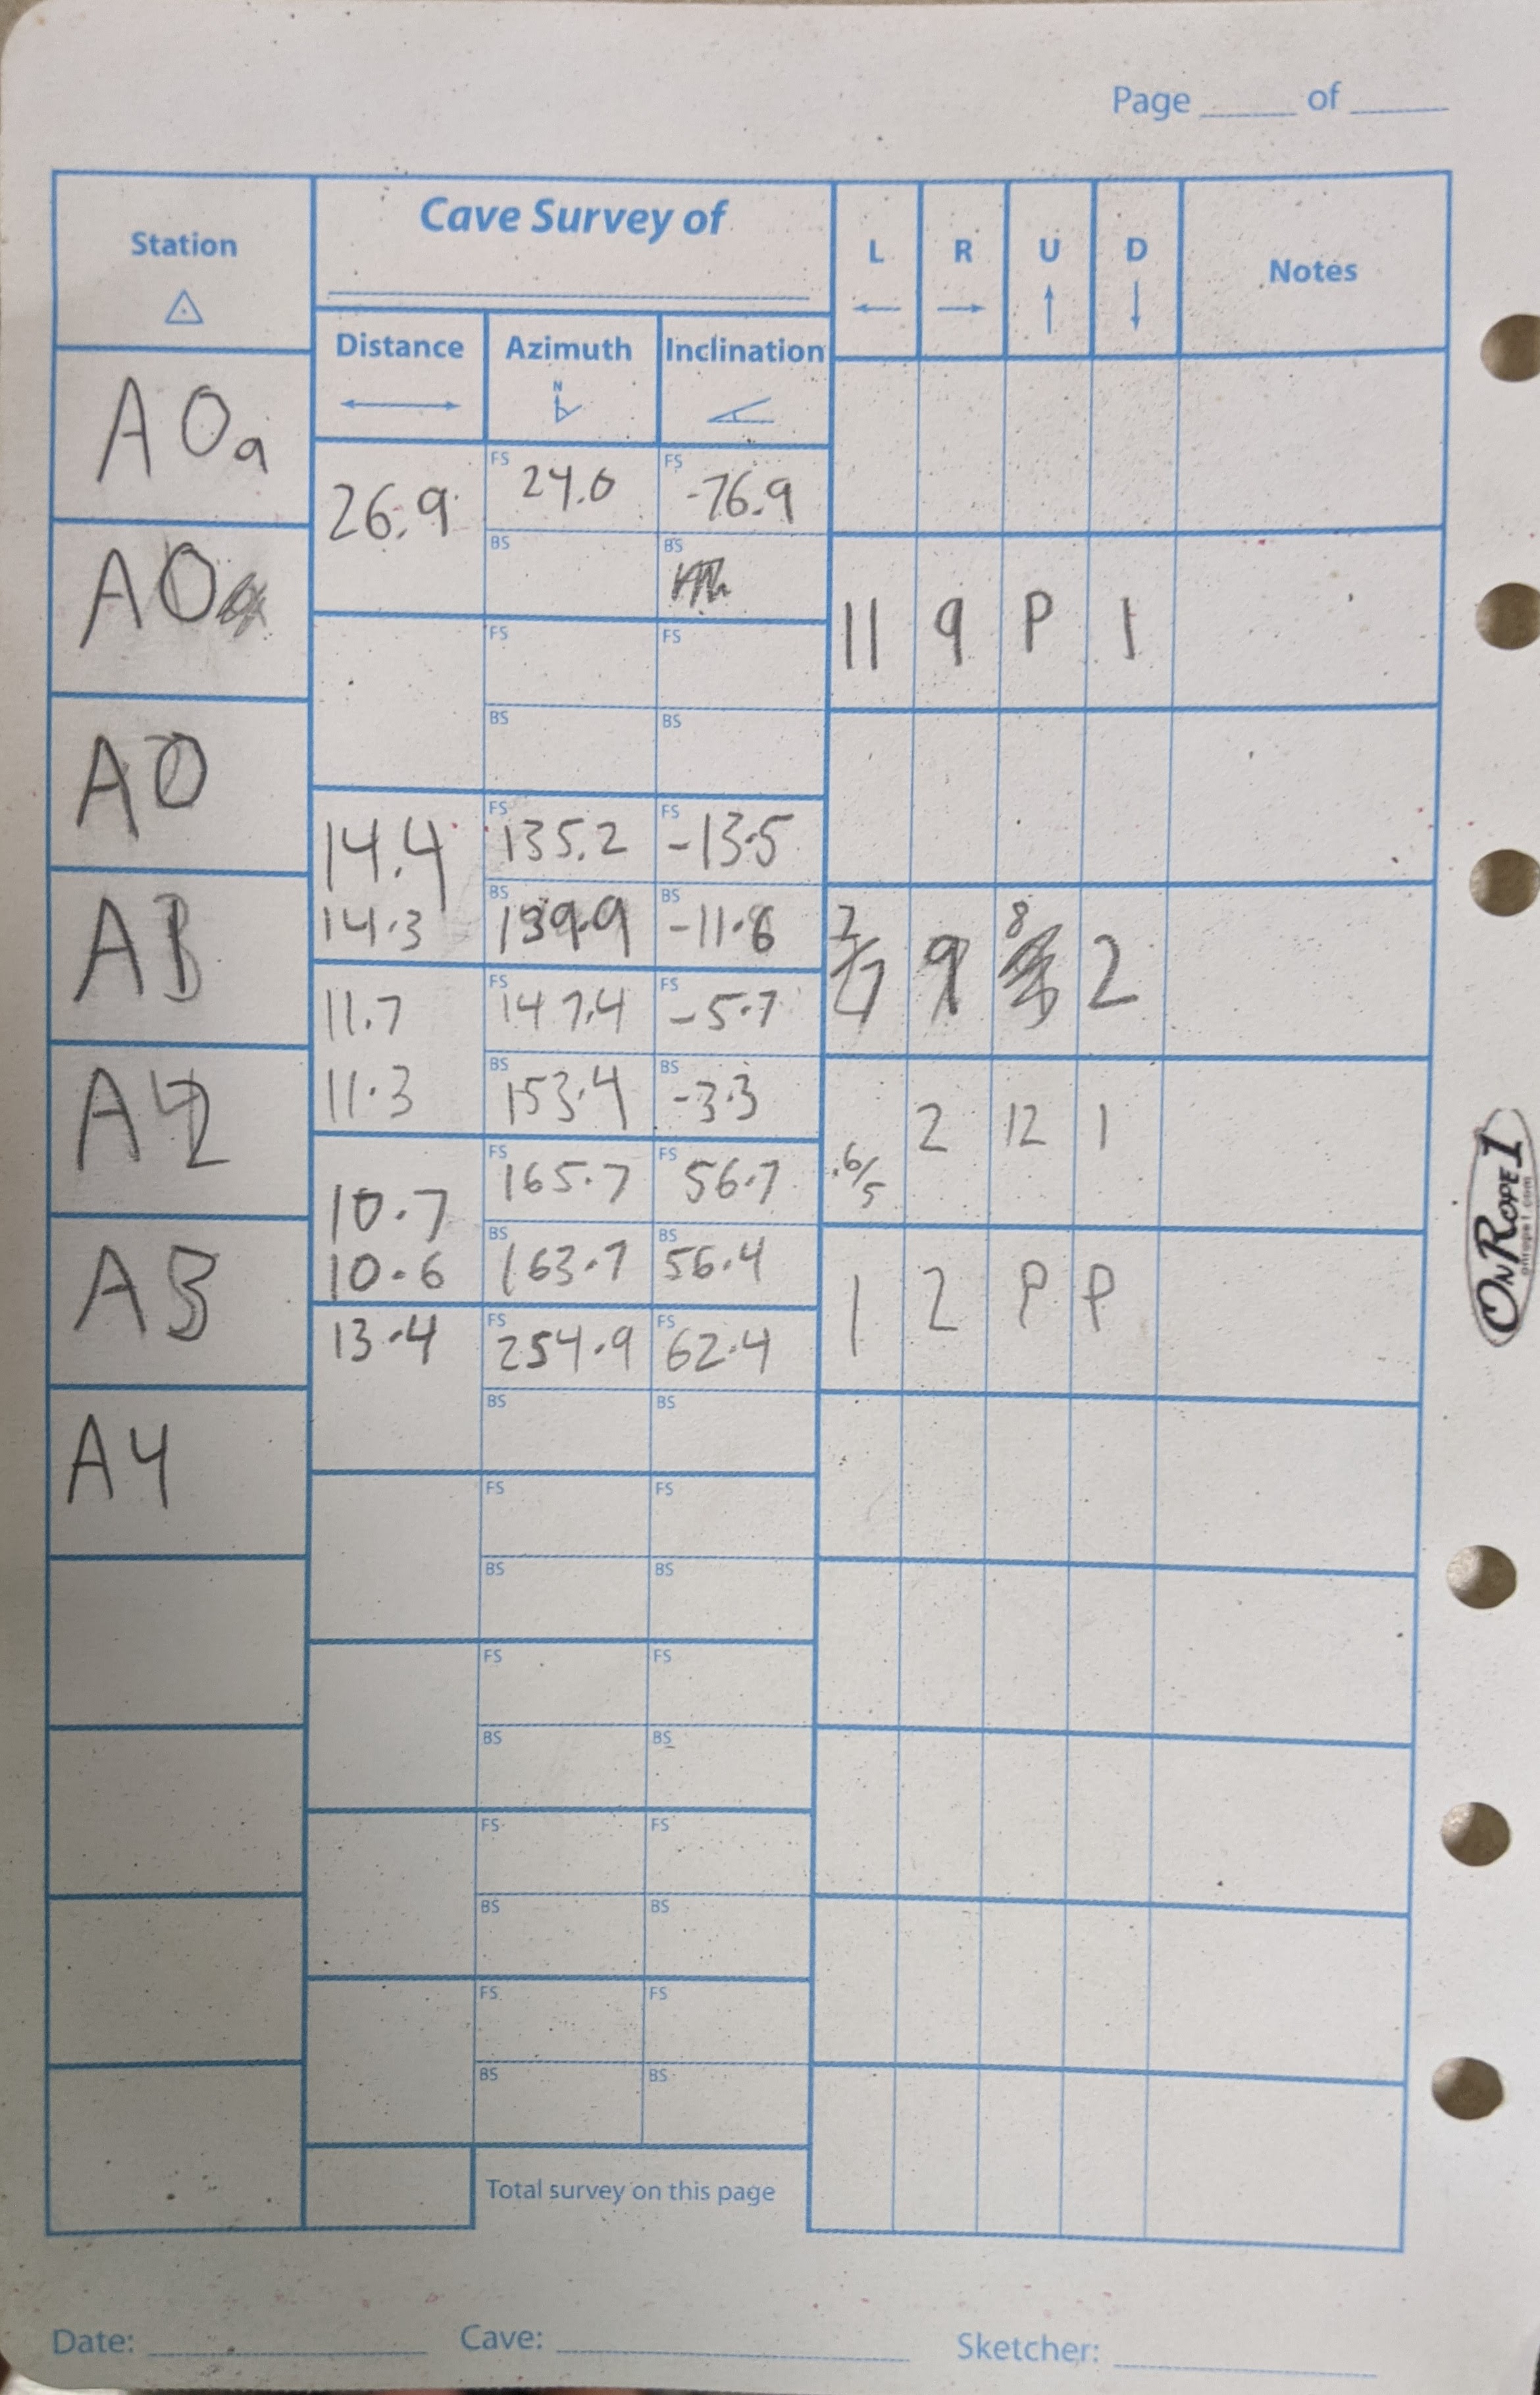 Page of
Station
Cave Survey of
L R U D
Notes
Distance Azimuth Inclination
N
A0a
26.9 FS 24.0 FS -76.9
BS BS
A0
11 9 P 1
FS FS
BS BS
A0
14.4 FS 135.2 FS -13.5
14.3 BS 139.9 BS -11.8
A1
7 9 8 2
11.7 FS 147.4 FS -5.7
11.3 BS 153.4 BS -3.3
A2
.6/5 2 12 1
10.7 FS 165.7 FS 56.7
10.6 BS 163.7 BS 56.4
A3
1 2 P P
13.4 FS 254.9 FS 62.4
BS BS
A4
FS FS
BS BS
FS FS
BS BS
FS FS
BS BS
FS FS
BS BS
Total survey on this page
Date: Cave: Sketcher:
ONROPE1
onrope1.com